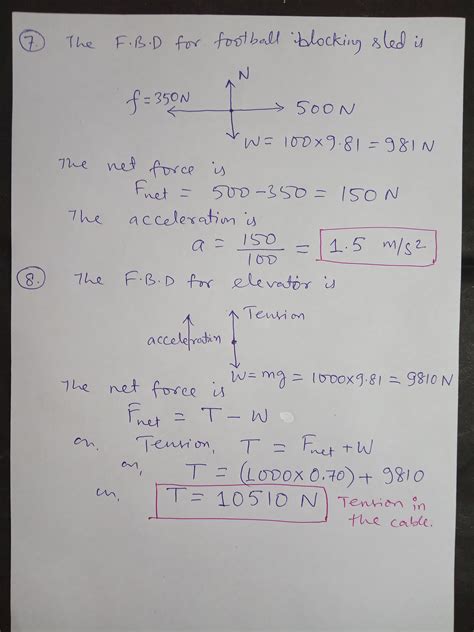 7. The F.B.D for football blocking sled is
N
f = 350N
500N
W = 100×9.81 = 981 N
The net force is
Fnet = 500 - 350 = 150 N
The acceleration is
a = 150/100 = 1.5 m/s²
8. The F.B.D for elevator is
Tension
acceleration
W = mg = 1000×9.81 = 9810N
The net force is
Fnet = T - W
or, Tension, T = Fnet + W
or, T = (1000×0.70) + 9810
or. T = 10510 N Tension in
the cable.